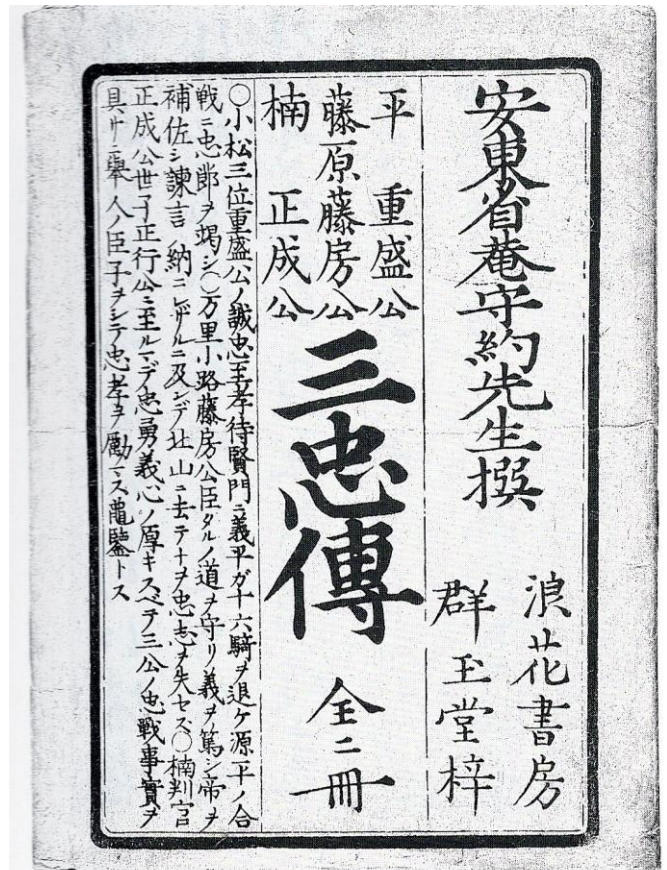 安東省菴守約先生撰
浪花書房
群玉堂梓
平重盛公
藤原藤房公
楠正成公
三忠傳
全二冊
○小松三位重盛公ノ誠忠至孝待賢門ニ義平ガ十六騎ヲ退ケ源平ノ合
戦ニ忠節ヲ竭シ○万里小路藤房公臣タルノ道ヲ守リ義ヲ篤シ帝ヲ
補佐シ諫言納レザルニ及ンデ北山ニ去テナヲ忠志ヲ失セズ○楠判官
正成公世子正行公ニ至ルマデ忠勇義心ノ厚キスベテ三公ノ忠戦事實ヲ
具サニ舉人ノ臣子ヲシテ忠孝ヲ勵マス龜鑑トス